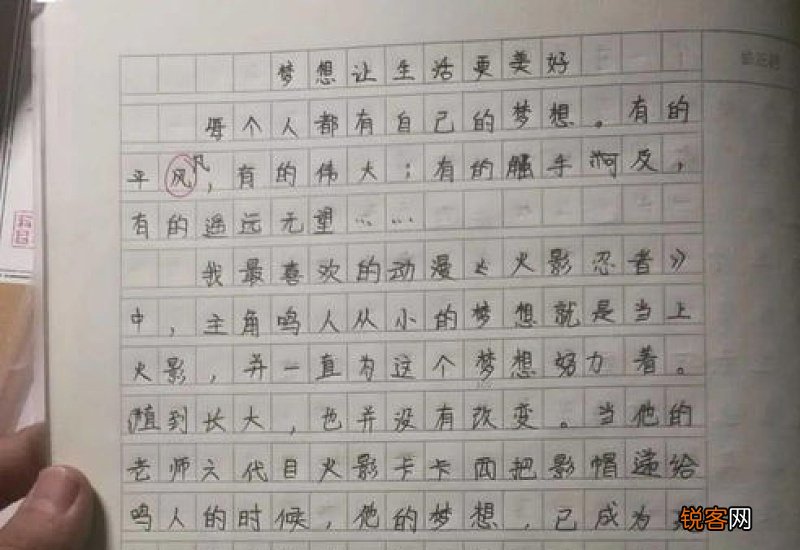 梦想让生活更美好
每个人都有自己的梦想。有的
平风凡，有的伟大；有的触手可及，
有的遥远无望……
我最喜欢的动漫《火影忍者》
中，主角鸣人从小的梦想就是当上
火影，并一直为这个梦想努力着。
直到长大，也并没有改变。当他的
老师六代目火影卡卡西把影帽递给
鸣人的时候，他的梦想，已成为
锐客网